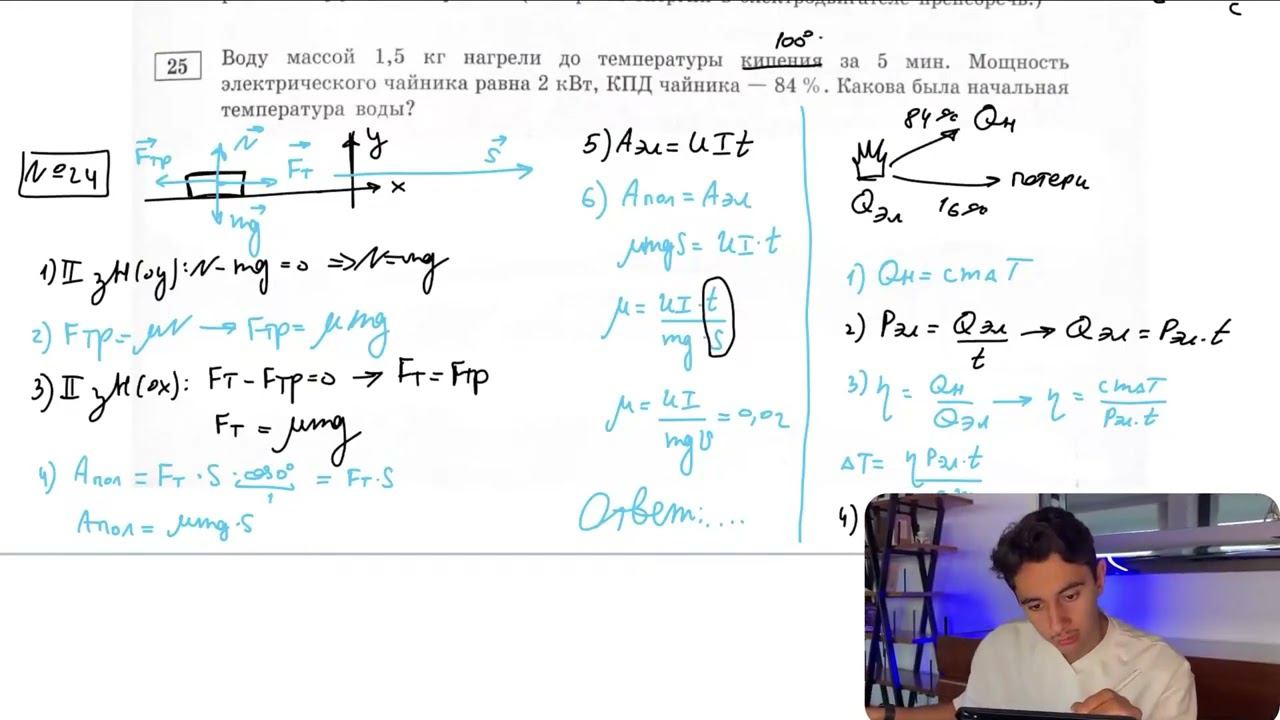 25
Воду массой 1,5 кг нагрели до температуры кипения за 5 мин. Мощность
электрического чайника равна 2 кВт, КПД чайника — 84 %. Какова была начальная
температура воды?
100°
№24
Fтр N Fт mg y x S
1) II зН(оy): N - mg = 0 => N = mg
2) Fтр = μN → Fтр = μmg
3) II зН(ox): Fт - Fтр = 0 → Fт = Fтр
Fт = μmg
4) Aпол = Fт · S · cos0° = Fт · S
1
Aпол = μmg · S
5) Aэл = UIt
6) Aпол = Aэл
μmgS = UI · t
μ = UI · t / mg · S
μ = UI / mgυ = 0,02
Ответ: ....
84% Qн
Qэл 16% потери
1) Qн = cmΔT
2) Pэл = Qэл / t → Qэл = Pэл · t
3) η = Qн / Qэл → η = cmΔT / Pэл · t
ΔT = ηPэл · t
4)